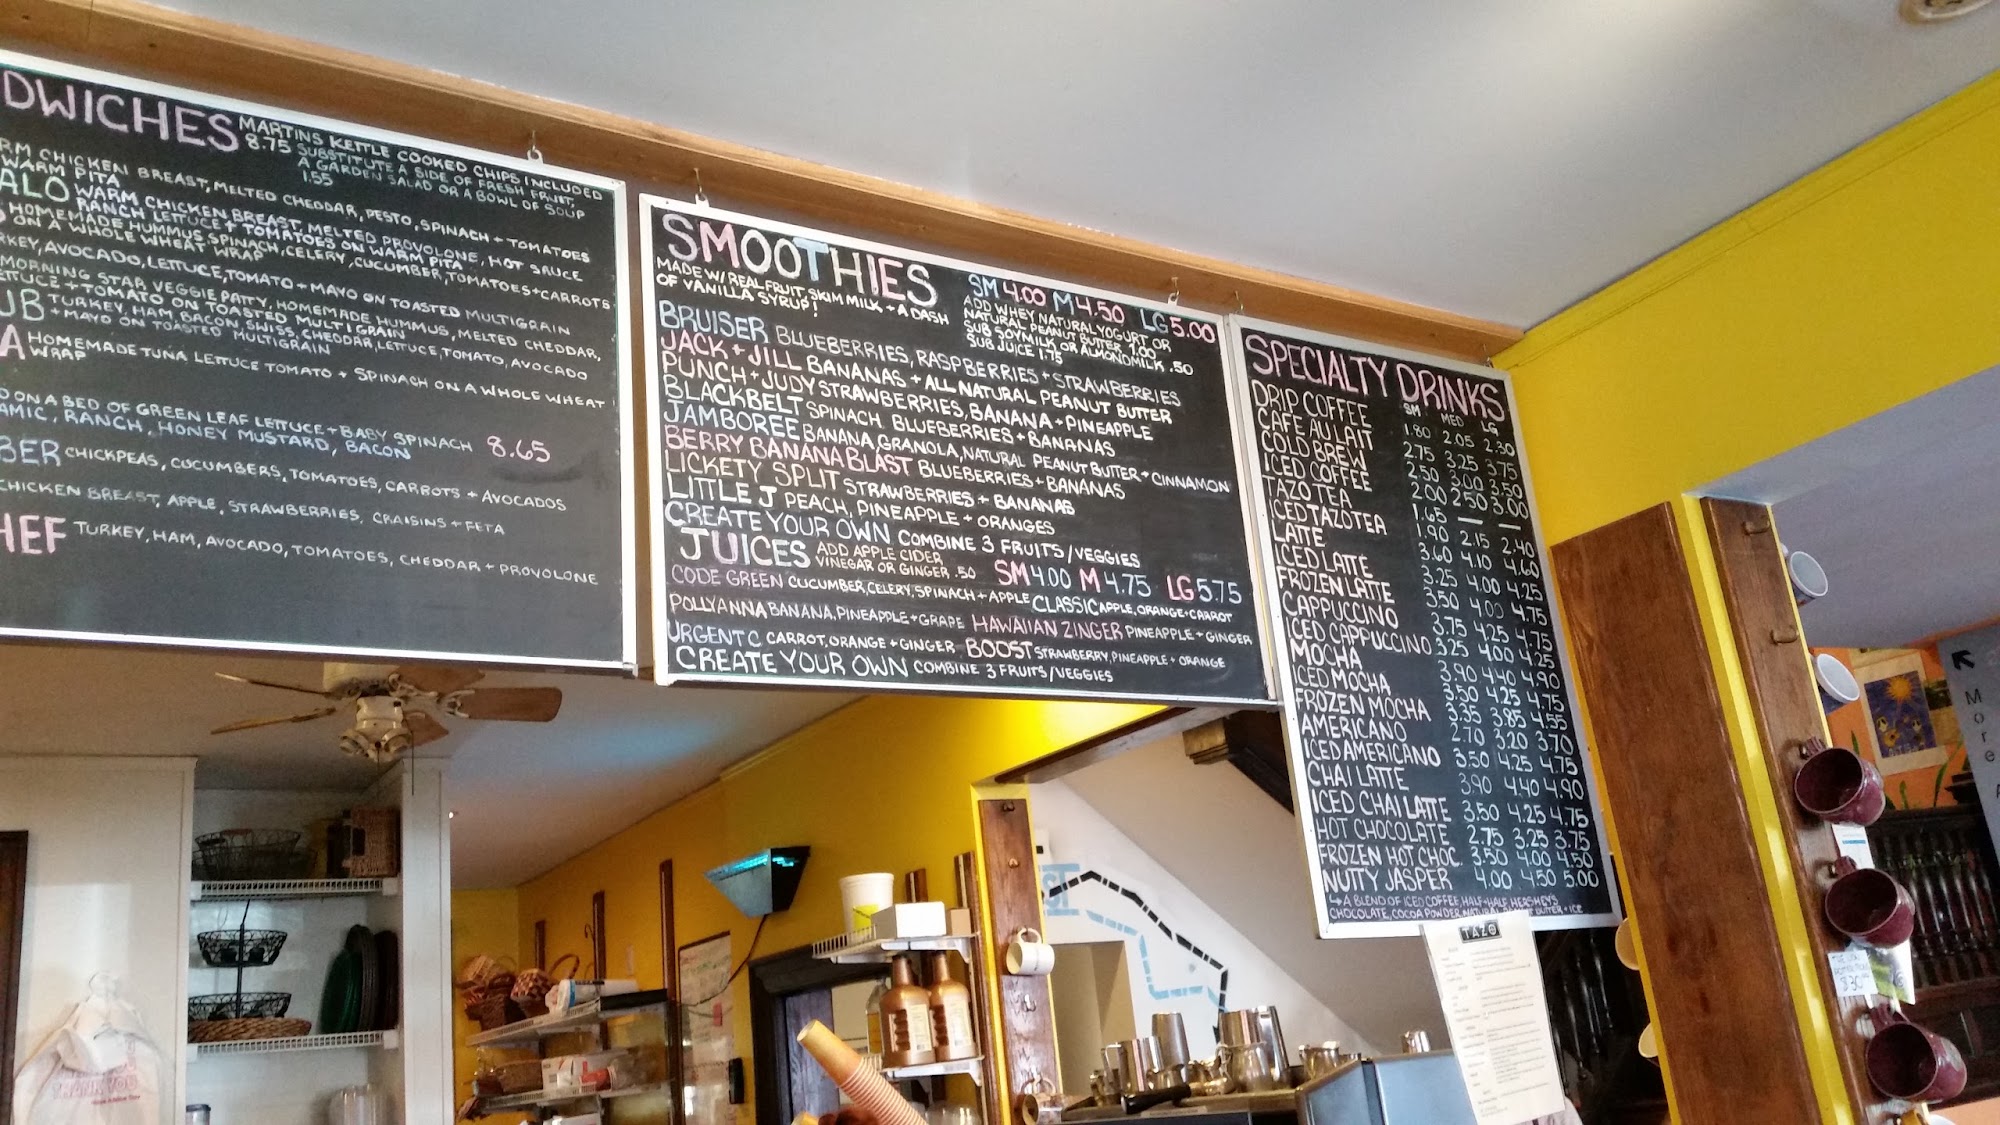 DWICHES
MARTINS KETTLE COOKED CHIPS INCLUDED
8.75 SUBSTITUTE A SIDE OF FRESH FRUIT,
A GARDEN SALAD OR A BOWL OF SOUP
1.55
RM CHICKEN BREAST, MELTED CHEDDAR, PESTO, SPINACH + TOMATOES
WARM PITA
ALO WARM CHICKEN BREAST, MELTED PROVOLONE, HOT SAUCE
RANCH LETTUCE + TOMATOES ON WARM PITA
HOMEMADE HUMMUS, SPINACH, CELERY, CUCUMBER, TOMATOES + CARROTS
ON A WHOLE WHEAT WRAP
RKEY, AVOCADO, LETTUCE, TOMATO + MAYO ON TOASTED MULTIGRAIN
MORNING STAR VEGGIE PATTY, HOMEMADE HUMMUS, MELTED CHEDDAR,
ETTUCE + TOMATO ON TOASTED MULTIGRAIN
UB TURKEY, HAM, BACON, SWISS, CHEDDAR, LETTUCE, TOMATO, AVOCADO
+ MAYO ON TOASTED MULTIGRAIN
A HOMEMADE TUNA LETTUCE TOMATO + SPINACH ON A WHOLE WHEAT
WRAP
D ON A BED OF GREEN LEAF LETTUCE + BABY SPINACH 8.65
AMIC, RANCH, HONEY MUSTARD, BACON
BER CHICKPEAS, CUCUMBERS, TOMATOES, CARROTS + AVOCADOS
CHICKEN BREAST, APPLE, STRAWBERRIES, CRAISINS + FETA
HEF TURKEY, HAM, AVOCADO, TOMATOES, CHEDDAR + PROVOLONE
SMOOTHIES SM 4.00 M 4.50 LG 5.00
MADE W/REAL FRUIT, SKIM MILK + A DASH
OF VANILLA SYRUP!
ADD WHEY NATURAL YOGURT OR
NATURAL PEANUT BUTTER 1.00
SUB SOYMILK OR ALMONDMILK .50
SUB JUICE 1.75
BRUISER BLUEBERRIES, RASPBERRIES + STRAWBERRIES
JACK + JILL BANANAS + ALL NATURAL PEANUT BUTTER
PUNCH + JUDY STRAWBERRIES, BANANA + PINEAPPLE
BLACKBELT SPINACH, BLUEBERRIES + BANANAS
JAMBOREE BANANA, GRANOLA, NATURAL PEANUT BUTTER + CINNAMON
BERRY BANANA BLAST BLUEBERRIES + BANANAS
LICKETY SPLIT STRAWBERRIES + BANANAS
LITTLE J PEACH, PINEAPPLE + ORANGES
CREATE YOUR OWN COMBINE 3 FRUITS/VEGGIES
JUICES ADD APPLE CIDER
VINEGAR OR GINGER .50 SM 4.00 M 4.75 LG 5.75
CODE GREEN CUCUMBER, CELERY, SPINACH + APPLE CLASSIC APPLE, ORANGE + CARROT
POLLYANNA BANANA, PINEAPPLE + GRAPE HAWAIIAN ZINGER PINEAPPLE + GINGER
URGENT C CARROT, ORANGE + GINGER BOOST STRAWBERRY, PINEAPPLE + ORANGE
CREATE YOUR OWN COMBINE 3 FRUITS/VEGGIES
SPECIALTY DRINKS
SM MED LG
DRIP COFFEE 1.80 2.05 2.30
CAFE AU LAIT 2.75 3.25 3.75
COLD BREW 2.50 3.00 3.50
ICED COFFEE 2.00 2.50 3.00
TAZO TEA 1.65 — —
ICED TAZO TEA 1.90 2.15 2.40
LATTE 3.60 4.10 4.60
ICED LATTE 3.25 4.00 4.25
FROZEN LATTE 3.50 4.00 4.75
CAPPUCCINO 3.75 4.25 4.75
ICED CAPPUCCINO 3.25 4.00 4.25
MOCHA 3.90 4.40 4.90
ICED MOCHA 3.50 4.25 4.75
FROZEN MOCHA 3.35 3.85 4.55
AMERICANO 2.70 3.20 3.70
ICED AMERICANO 3.50 4.25 4.75
CHAI LATTE 3.90 4.40 4.90
ICED CHAI LATTE 3.50 4.25 4.75
HOT CHOCOLATE 2.75 3.25 3.75
FROZEN HOT CHOC. 3.50 4.00 4.50
NUTTY JASPER 4.00 4.50 5.00
↳ A BLEND OF ICED COFFEE, HALF + HALF, HERSHEYS
CHOCOLATE, COCOA POWDER, NATURAL PEANUT BUTTER + ICE
TAZO
THANK YOU
More
$30